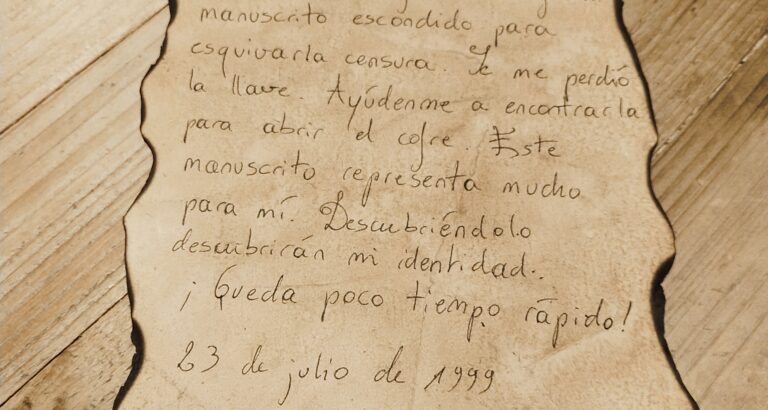 manuscrito escondido para
esquivarla censura. Se me perdió
la llave. Ayúdenme a encontrarla
para abrir el cofre. Este
manuscrito representa mucho
para mí. Descubriéndolo
descubrirán mi identidad..
¡Queda poco tiempo rápido!
23 de julio de 1999